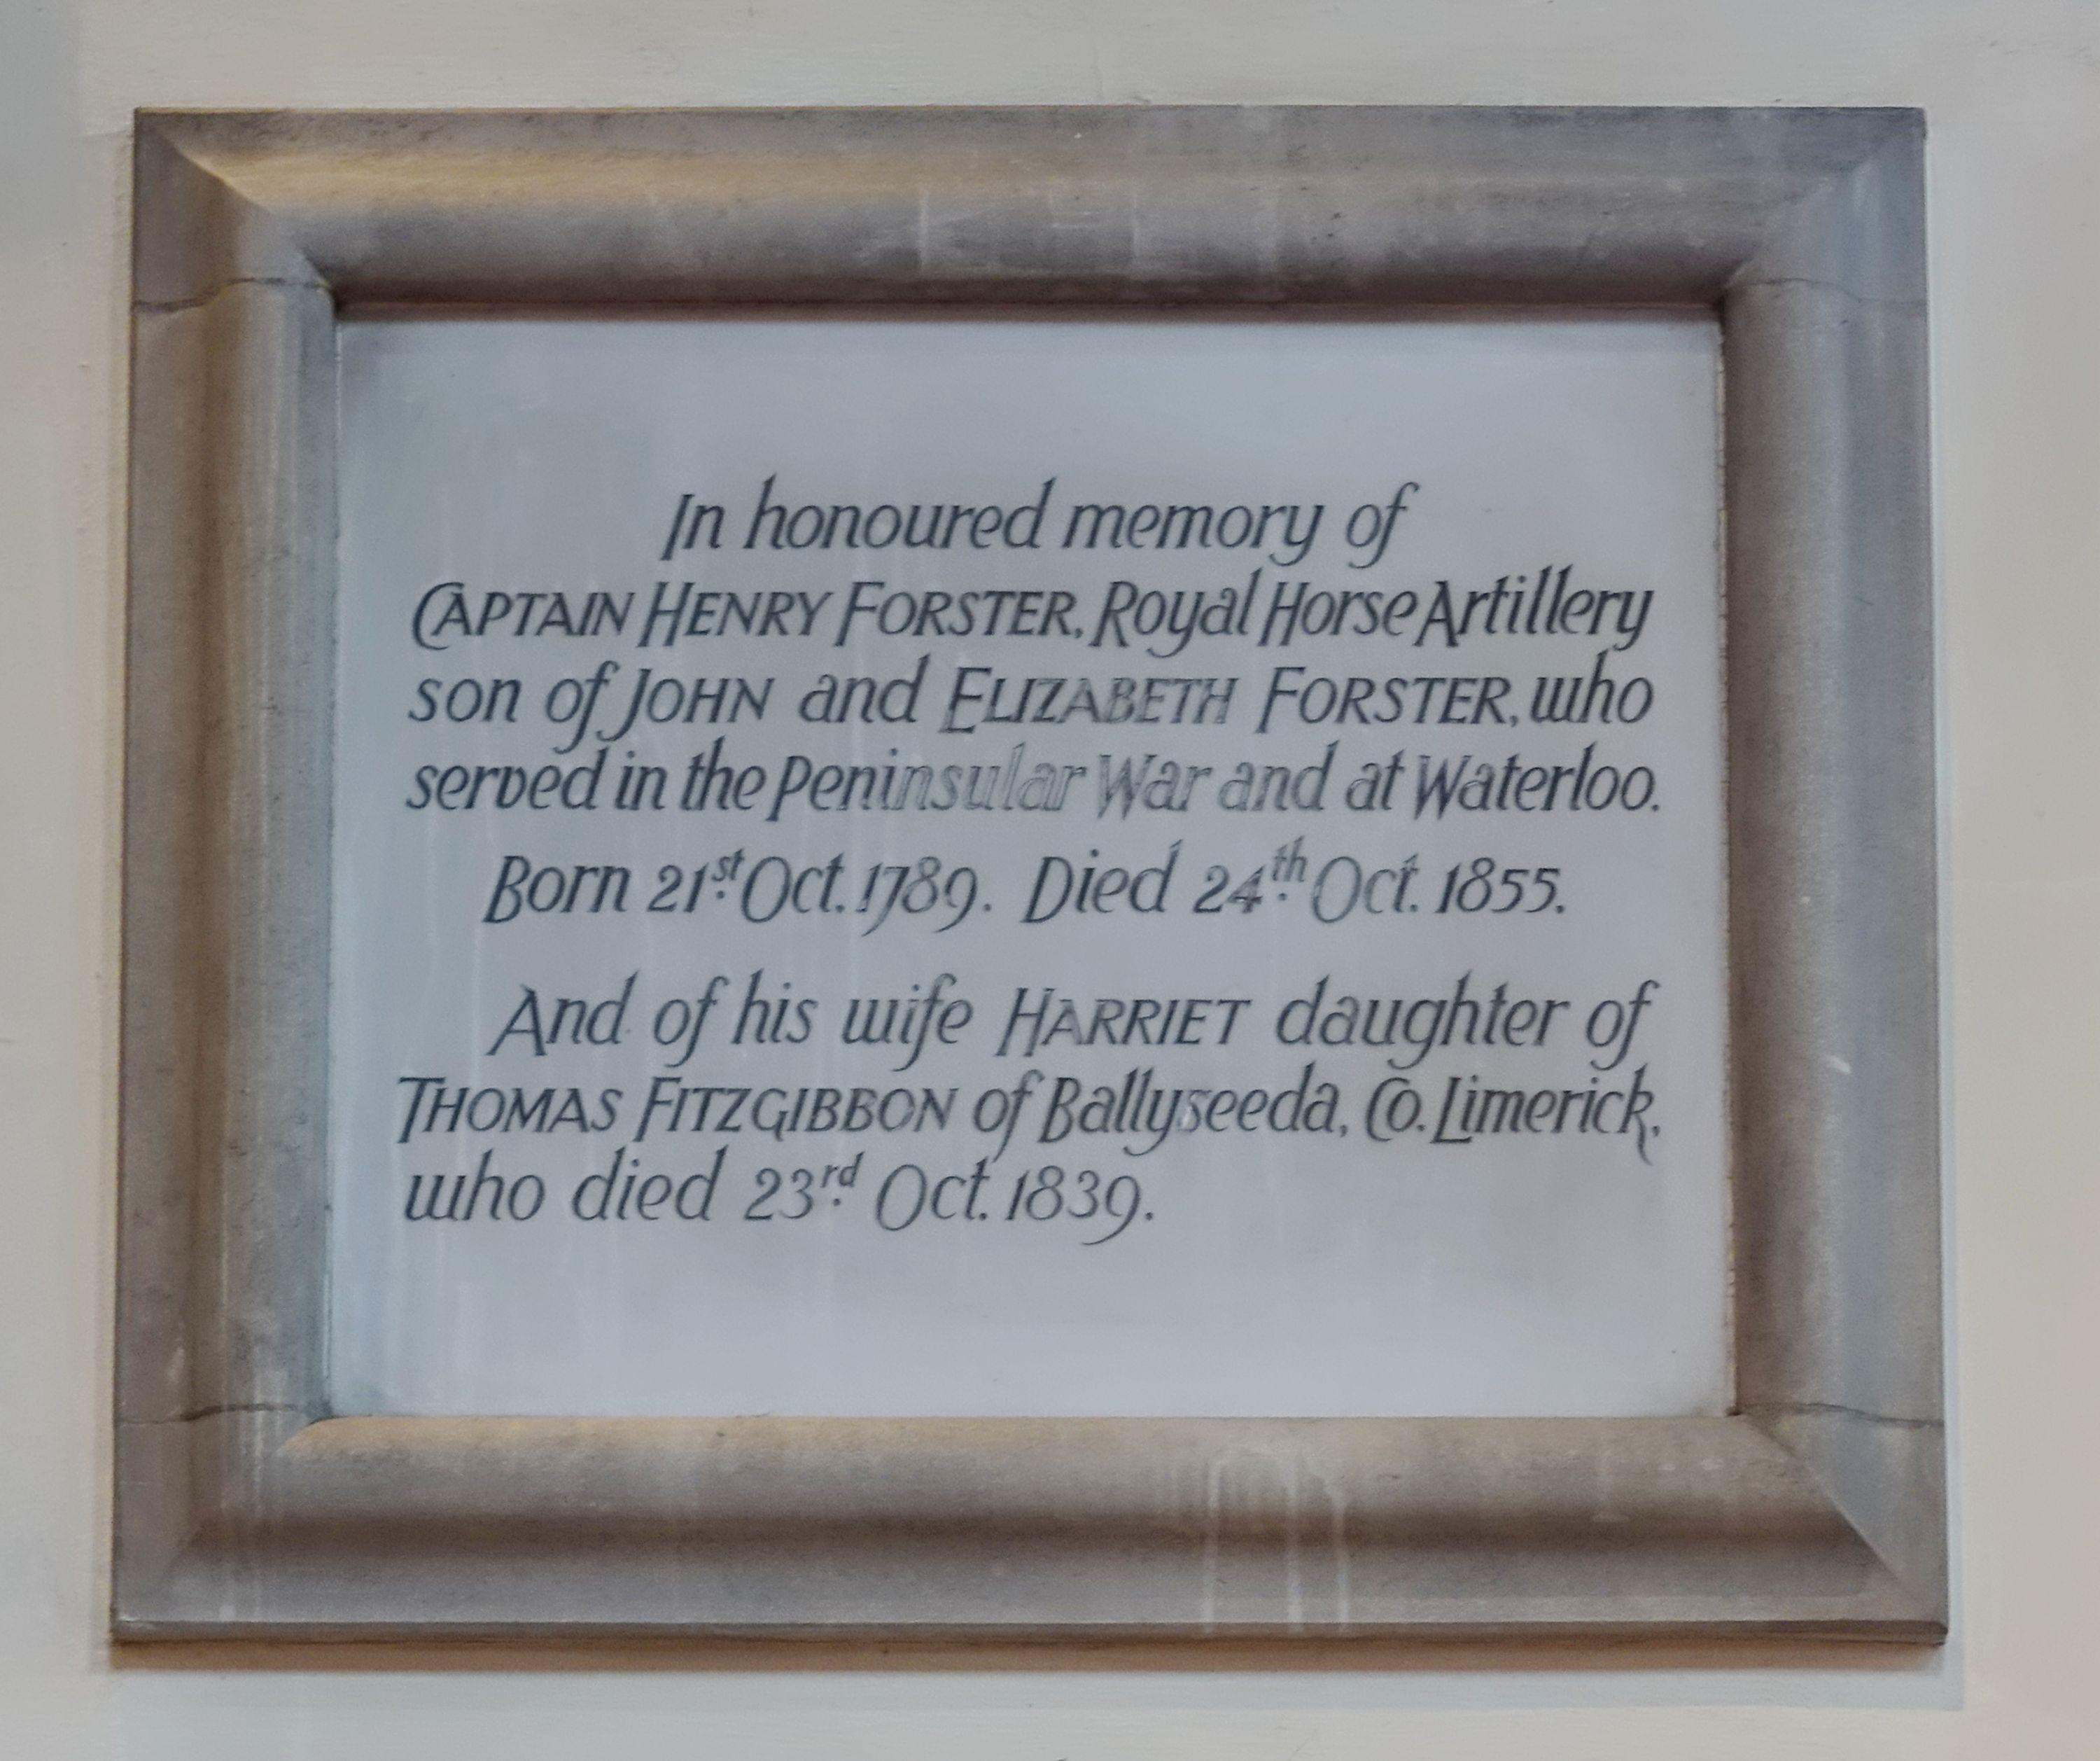 In honoured memory of
CAPTAIN HENRY FORSTER, Royal Horse Artillery
son of JOHN and ELIZABETH FORSTER, who
served in the Peninsular War and at Waterloo.
Born 21st Oct. 1789. Died 24th Oct. 1855.
And of his wife HARRIET daughter of
THOMAS FITZGIBBON of Ballyseeda, Co. Limerick,
who died 23rd Oct. 1839.